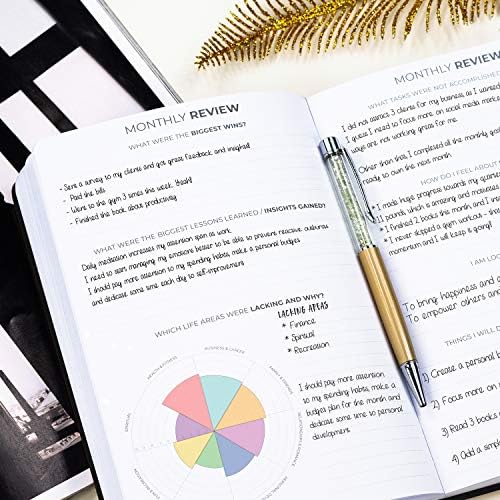 MONTHLY REVIEW
WHAT WERE THE BIGGEST WINS?
- Sent a survey to my clients and got great feedback and insights!
- Paid the bills
- Went to the gym 3 times the week. Yeah!
- Finished the book about productivity
WHAT WERE THE BIGGEST LESSONS LEARNED / INSIGHTS GAINED?
Daily meditation increases my attention span at work.
I need to start managing my emotions better to be able to prevent reactive outbursts
I should pay more attention to my spending habits, make a personal budget
and dedicate some time each day to self-improvement
WHICH LIFE AREAS WERE LACKING AND WHY?
LACKING AREAS
* Finance
* Spiritual
* Recreation
HEALTH & FITNESS
BUSINESS & CAREER
FAMILY & FRIENDS
SPIRITUAL
I should pay more attention
to my spending habits, make a
budget plan for the month and
dedicate some time to personal
development.
MONTHLY REVIEW
WHAT TASKS WERE NOT ACCOMPLISHED
I did not attract 3 clients for my business as I wanted
I guess I need to focus more on social media
ways are not working great for me.
Other than that, I completed all the monthly
ready to own the next month
HOW DO I FEEL ABOUT
* I made huge progress towards my
11 pounds, which is amazing and
* I finished 2 books this month, and
* I never skipped a gym workout -
momentum and I will keep it going!
I AM LOO
To bring happiness and
To empower others and
THINGS I WILL D
1) Create a personal
2) Focus more on
3) Read 3 books
4) Add a simple